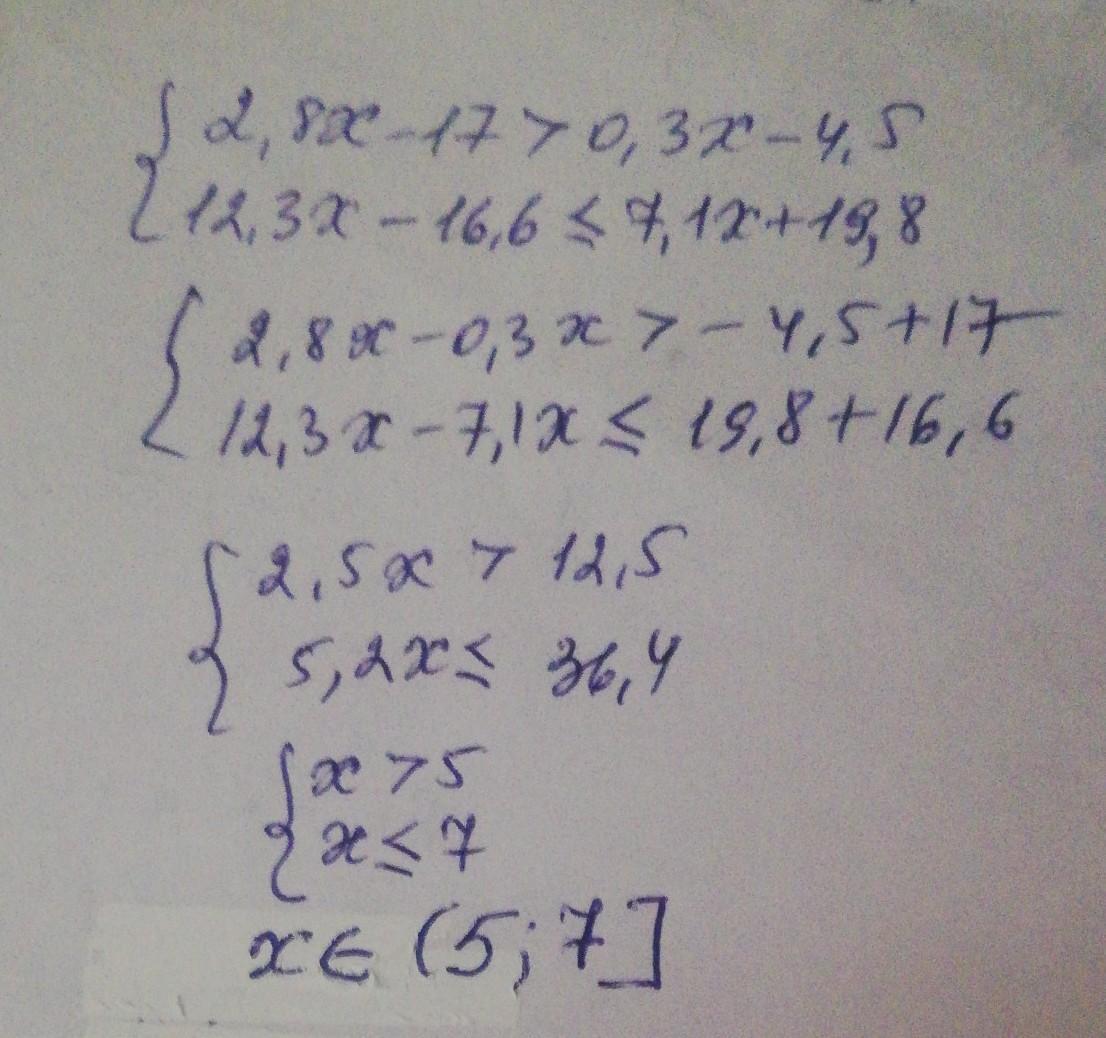 { 2,8x - 17 > 0,3x - 4,5
12,3x - 16,6 ≤ 7,1x + 19,8
{ 2,8x - 0,3x > - 4,5 + 17
12,3x - 7,1x ≤ 19,8 + 16,6
{ 2,5x > 12,5
5,2x ≤ 36,4
{ x > 5
x ≤ 7
x ∈ (5; 7]